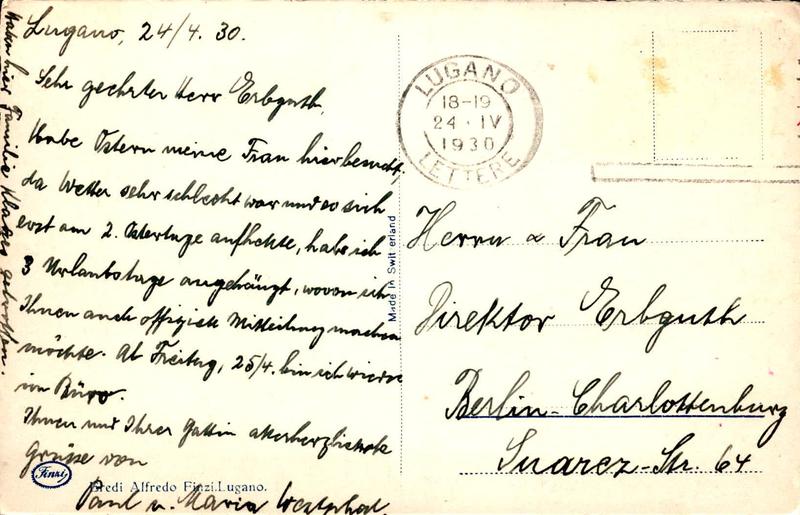 Lugano, 24/4. 30.
Sehr geehrter Herr Erbguth,
Habe Ostern meine Frau hier besucht,
da Wetter sehr schlecht war und es sich
erst am 2. Ostertage aufhellte, habe ich
3 Urlaubstage angehängt, wovon ich
Ihnen auch offiziell Mitteilung machen
möchte. Ab Freitag, 25/4. bin ich wieder
im Büro.
Ihnen und Ihrer Gattin allerherzlichste
Grüsse von
Paul u. Maria Westphal.
Haben hier Familie getroffen.
Finzi
Eredi Alfredo Finzi. Lugano.
Made in Switzerland
LUGANO
18-19
24·IV
1930
LETTERE
Herrn & Frau
Direktor Erbguth
Berlin-Charlottenburg
Suarez-Str. 64